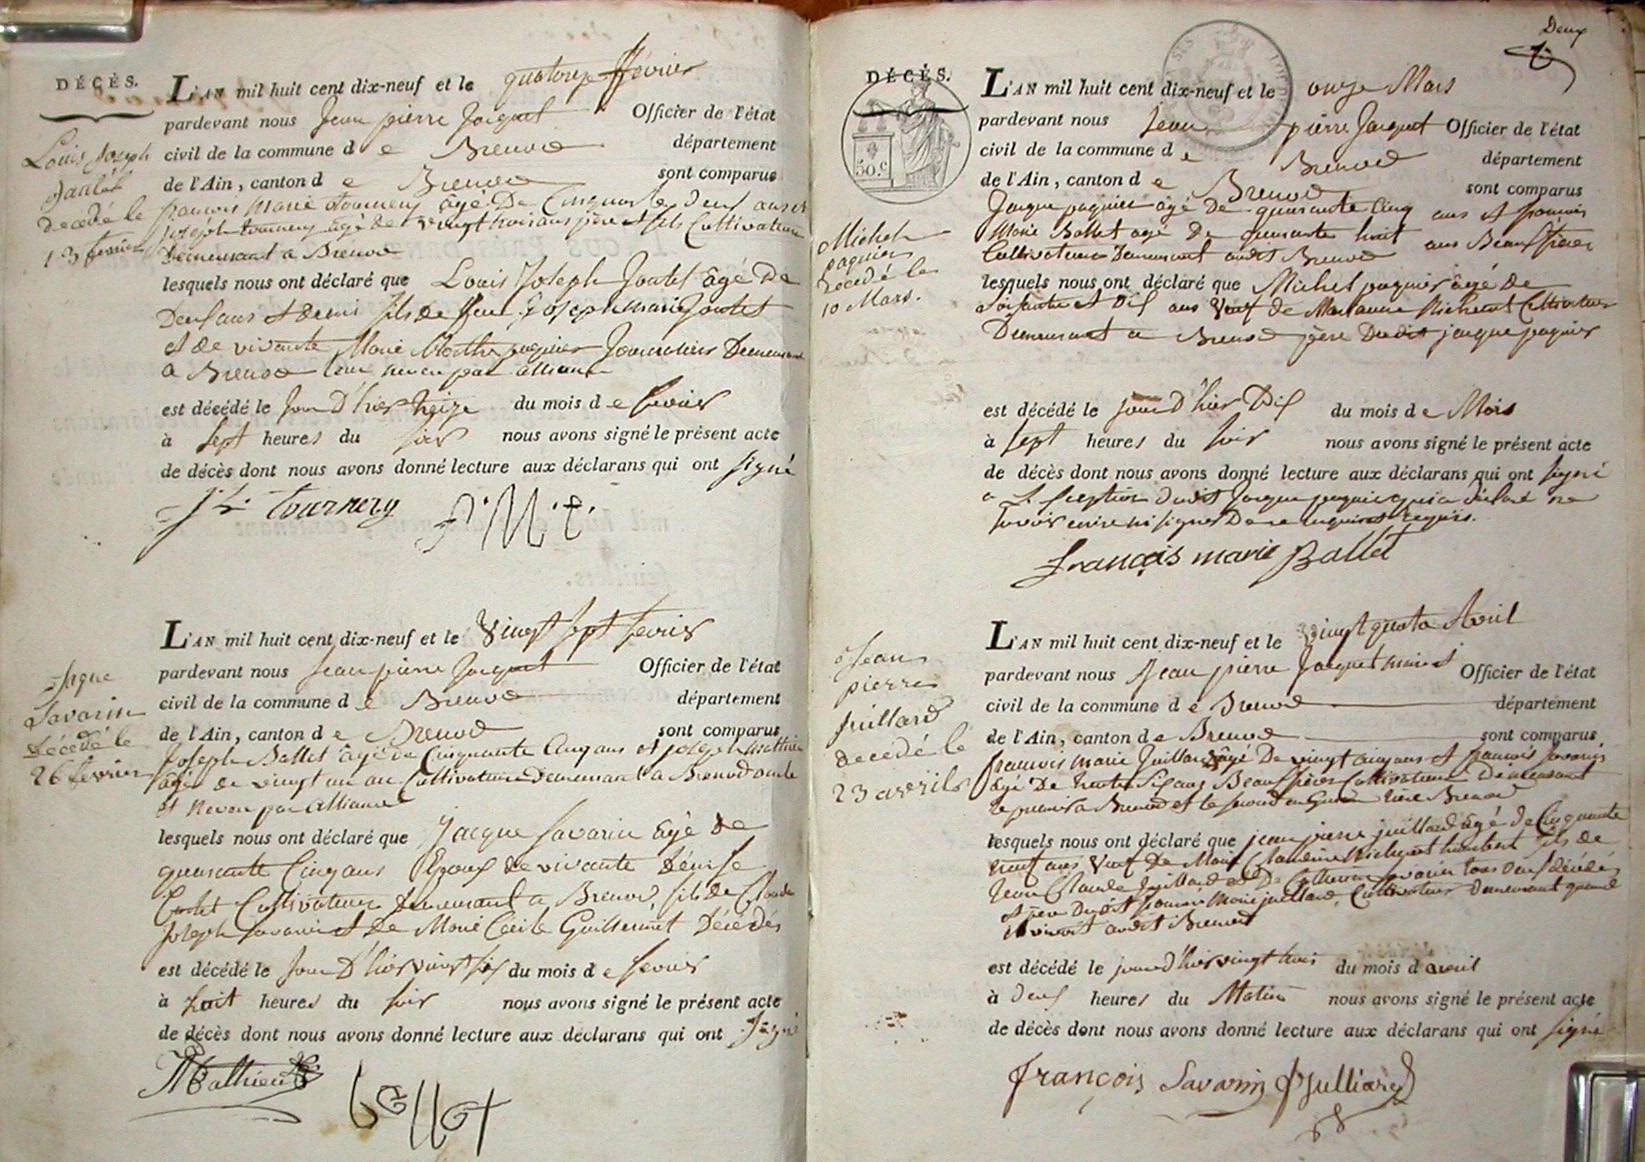 DÉCÈS.
Louis Joseph
Joutet
decedé le
13 fevrier
L'AN mil huit cent dix-neuf et le quatorze fevrier
pardevant nous Jean pierre Jacquet Officier de l'état
civil de la commune d e Brenod département
de l'Ain, canton d e Brenod sont comparus
francois Marie tournery agé De Cinquante Deux ans et
Joseph tournery agé de vingt trois ans père et fils Cultivateurs
Demeurant a Brenod
lesquels nous ont déclaré que Louis Joseph Joutet âgé De
Deux ans et demi fils de feu Joseph Marie Joutet
et de vivante Marie Marthe paquier Journaliers Demeurant
a Brenod leur neveu par alliance
est décédé le Jour D'hier treize du mois d e fevrier
à sept heures du soir nous avons signé le présent acte
de décès dont nous avons donné lecture aux déclarans qui ont signé
Jh tournery f.M.t.
Jaque
Savarin
Décédé le
26 fevrier
L'AN mil huit cent dix-neuf et le Vingt sept fevrier
pardevant nous Jean pierre Jacquet Officier de l'état
civil de la commune d e Brenod département
de l'Ain, canton d e Brenod sont comparus
Joseph Ballet âgé de Cinquante Cinq ans et joseph Mathieu
âgé de vingt un an Cultivateurs Demeurant a Brenod oncle
et Neveu par alliance
lesquels nous ont déclaré que Jacque Savarin âgé De
quarante Cinq ans Epoux de vivante Denise
Cultivateur Demeurant a Brenod, fils de Claude
Joseph Savarin et de Marie Cécile Guillermet Décédés
est décédé le Jour D'hier vingt six du mois d e fevrier
à huit heures du soir nous avons signé le présent acte
de décès dont nous avons donné lecture aux déclarans qui ont signé
Mathieu Ballet
Deux
DÉCÈS.
50.c
Michel
paquier
Decedé le
10 Mars.
L'AN mil huit cent dix-neuf et le onze Mars
pardevant nous Jean pierre Jacquet Officier de l'état
civil de la commune d e Brenod département
de l'Ain, canton d e Brenod sont comparus
Jaque paquier âgé De quarante Cinq ans et francois
Marie Ballet agé De quarante huit ans Beaux frères
Cultivateurs Demeurant audit Brenod
lesquels nous ont déclaré que Michel paquier âgé De
Soixante et Dix ans Veuf de Marianne Cultivateur
Demeurant a Brenod père Dudit jacque paquier
est décédé le jour D'hier Dix du mois d e Mars
à sept heures du soir nous avons signé le présent acte
de décès dont nous avons donné lecture aux déclarans qui ont signé
a L'Exeption dudit Jacque paquier qui a déclaré ne
savoir écrire ni signer De ce enquis et requis.
françois marie Ballet
Jean
pierre
Juillard
decedé le
23 avril
L'AN mil huit cent dix-neuf et le vingt quatre Avril
pardevant nous Jean pierre Jacquet maire et Officier de l'état
civil de la commune d e Brenod département
de l'Ain, canton d e Brenod sont comparus
francois Marie Juillard âgé De vingt cinq ans et francois Savarin
âgé De trente Six ans Beaux frères Cultivateurs Demeurant
le premier a Brenod et le second en rière Brenod
lesquels nous ont déclaré que jean pierre juillard âgé de Cinquante
neuf ans Veuf De Marie Claudine humbert fils de
Jean Claude Juillard et De Catherine Savarin tous deux décédés
et père Dudit francois Marie juillard, Cultivateur Demeurant quand
il vivoit audit Brenod
est décédé le jour d'hier vingt trois du mois d avril
à deux heures du Matin nous avons signé le présent acte
de décès dont nous avons donné lecture aux déclarans qui ont signé
françois Savarin Juilliard